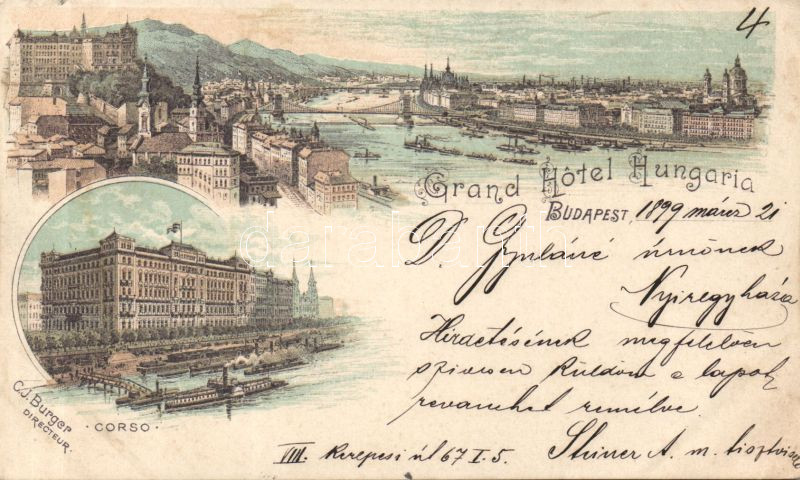 4
Grand Hôtel Hungaria
BUDAPEST, 1899 márcz 21
D. Gyuláné úrnőnek
Nyiregyháza
Hirdetésének megfelelően
szivesen küldöm e lapot
revanchet remélve.
Steiner A. m. tisztviselő
VIII. Kerepesi út 67 I. 5.
C.J. Burger
DIRECTEUR.
· CORSO ·
darabanth